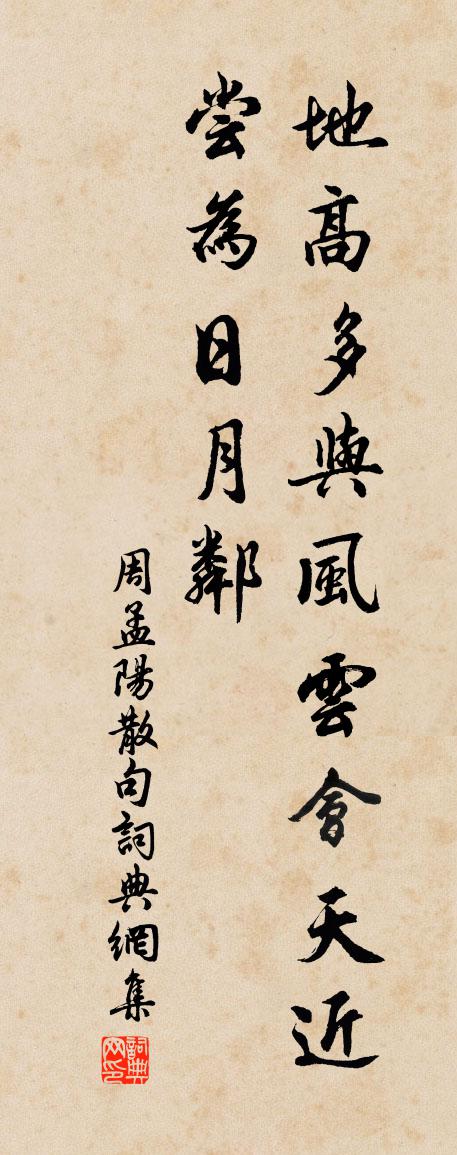 地高多與風雲會天近
嘗為日月鄰
周孟陽散句詞典網集
詞典网印